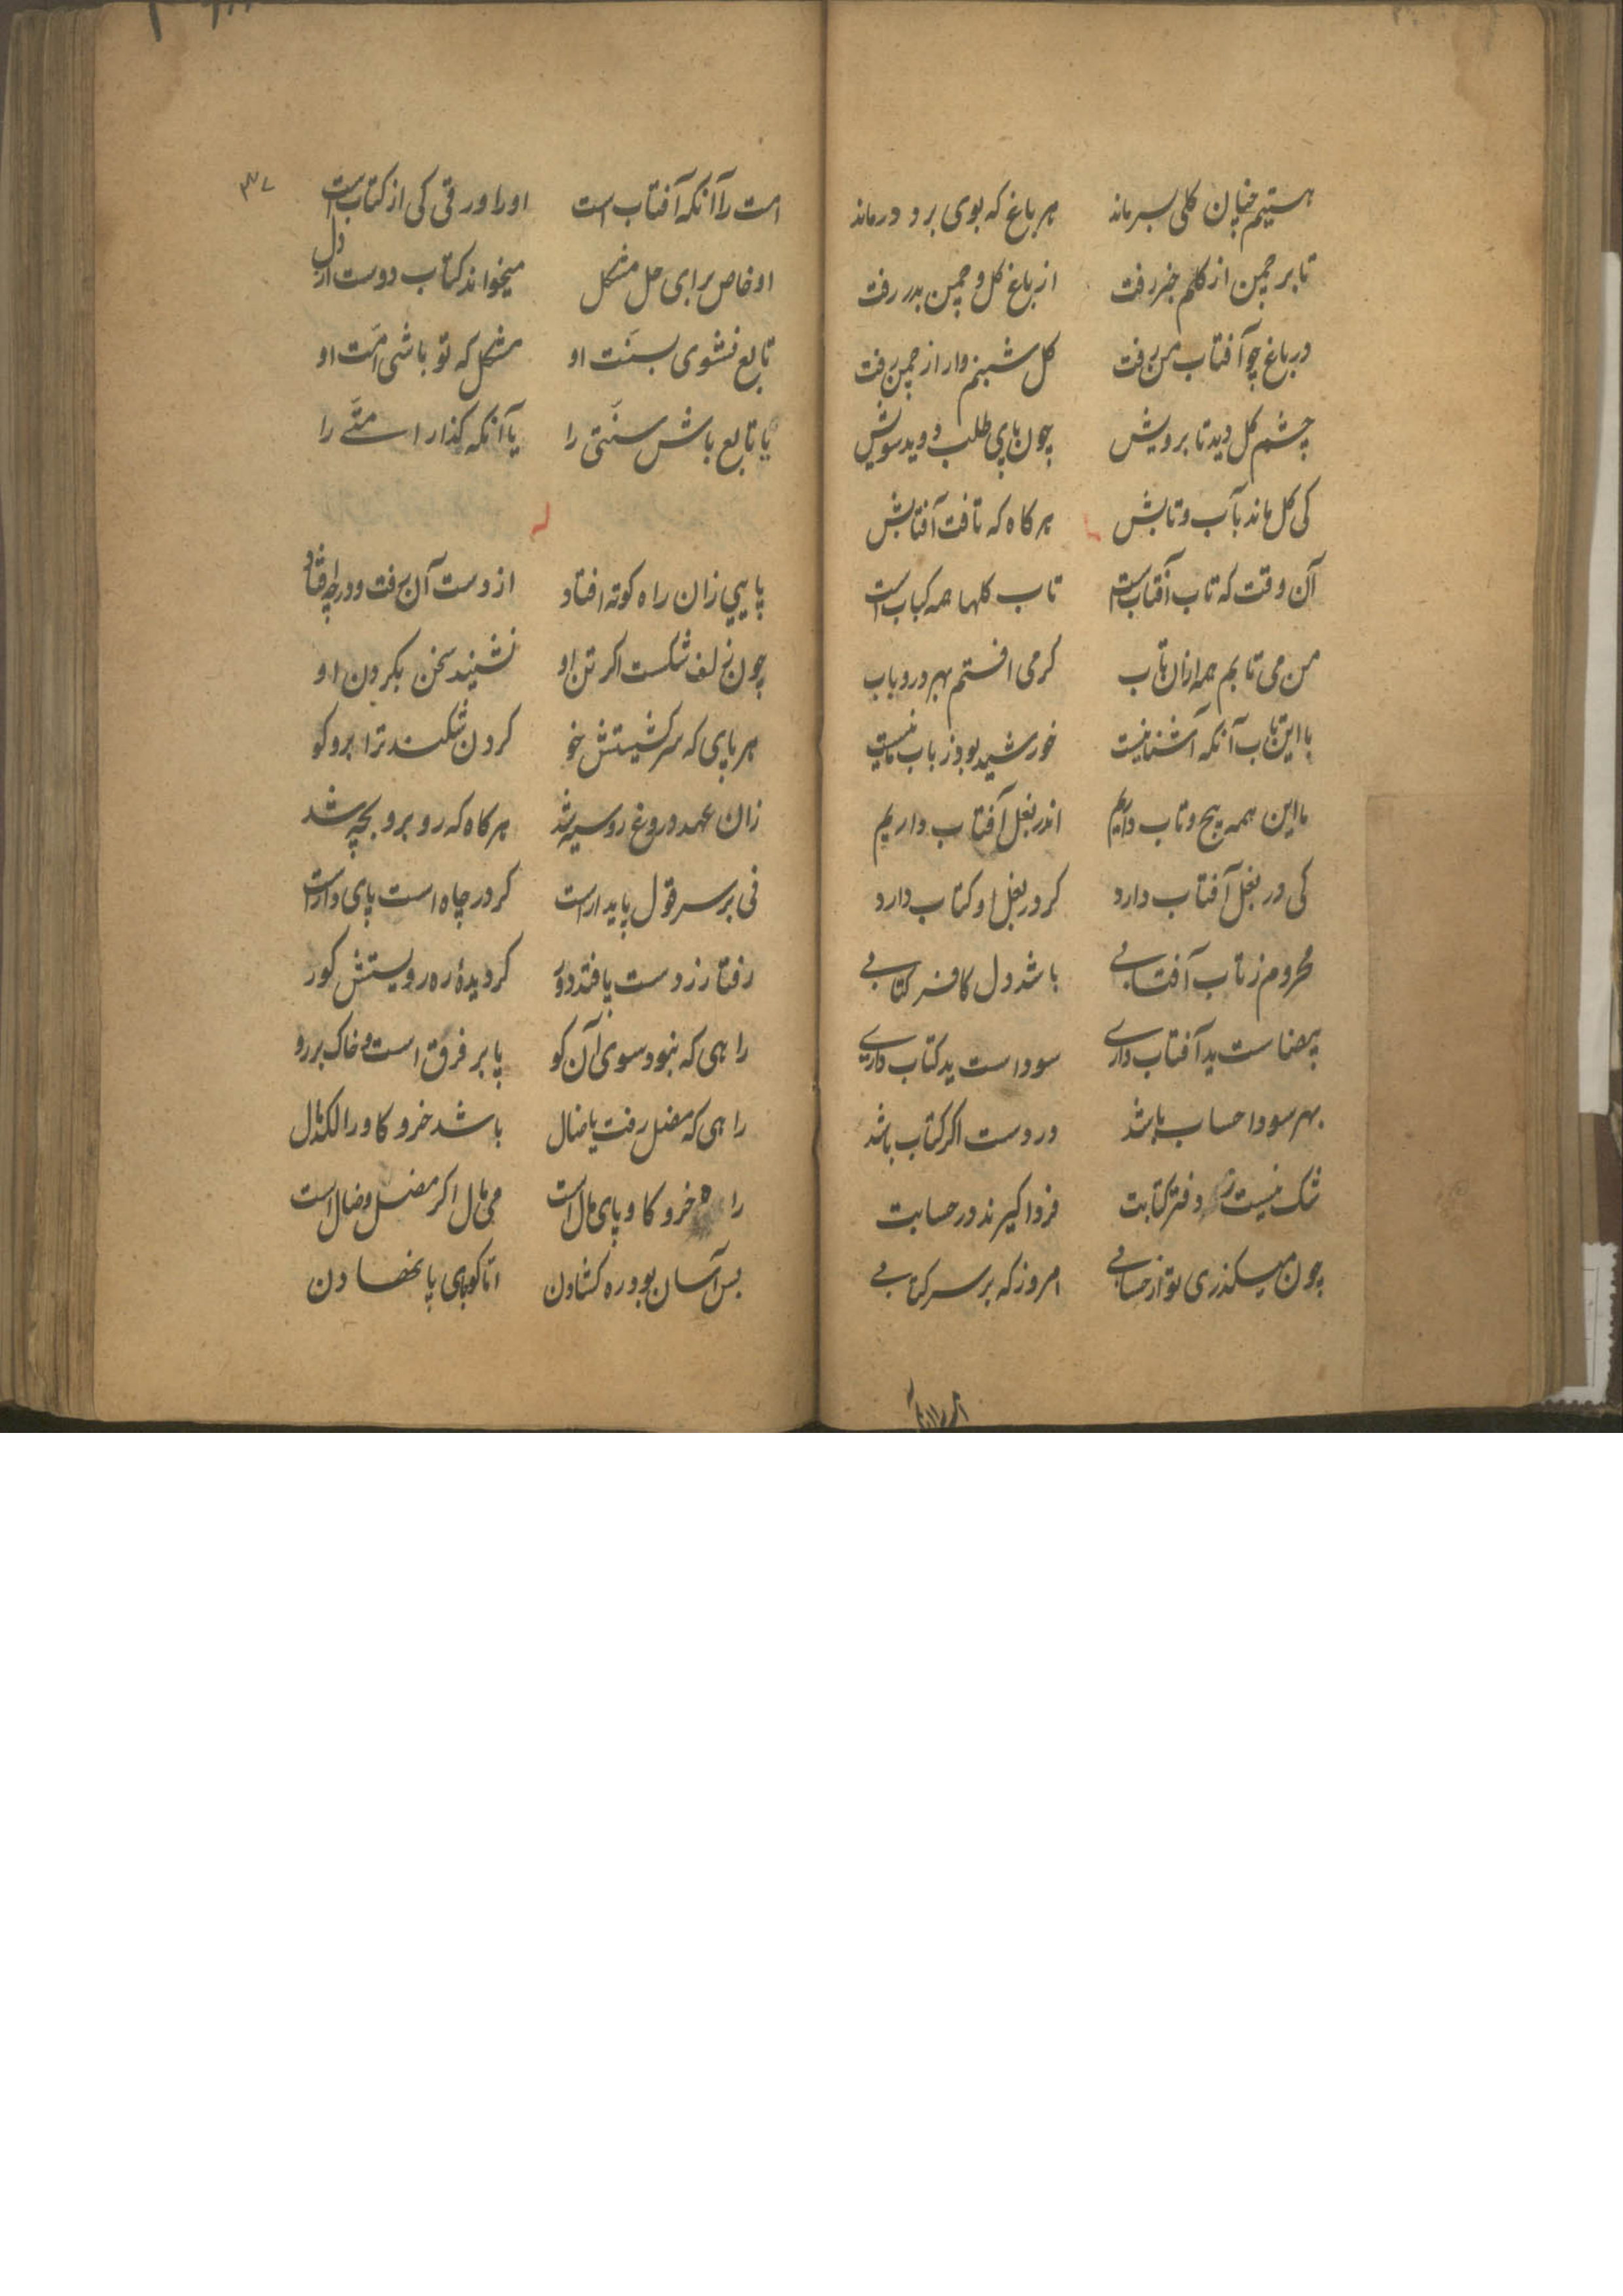 هستیم چنان کلی بسر ماند هر باغ که بوی برد درماند
تا بر چمن از کلم خبر رفت از باغ کل و چمن بدر رفت
در باغ چو آفتاب من رفت کل شبنم وار از چمن رفت
چشم کل دید تا برویش چون پای طلب دوید سویش
کی کل ماند بآب و تابش هر کاه که تافت آفتابش
آن وقت که تاب آفتابست تاب کلها همه کبابست
من می تابم همه ازان تاب کر می افتم بهر در و باب
با این تاب آنکه آشنا نیست خورشید بود ز باب ما نیست
ما این همه پیچ و تاب داریم اندر بغل آفتاب داریم
کی در بغل آفتاب دارد کر در بغل او کتاب دارد
محروم ز تاب آفتابی باشد دل کافر کتابی
بیضاست ید آفتاب داری سوداست ید کتاب داری
بهر سودا حساب باشد در دست اکر کتاب باشد
شک نیست ز دفتر کتابت فردا کیرند در حسابت
چون میکذری تو از حسابی امروز که بر سر کتابی
امت را آنکه آفتاب است او را ورقی کی از کتابست
او خاص برای حل مشکل میخواند کتاب دوست از دل
تابع نشوی بسنّت او مشکل که تو باشی امّت او
یا تابع باش سنّتی را یا آنکه کذار امّتی را
پایی زان راه کوته افتاد از دست آن رفت و در چه افتاد
چون زلف شکست اکر تن او نشنید سخن بکردن او
هر پای که سرکشیتش خو کردن شکند ترا برو کو
زان عهد دروغ روسیه شد هر کاه که روبرو بچه شد
نی بر سر قول پایدارست کر در چاه است پای دارست
رفتار ز دست پا فتد دور کر دیدهٔ ره رویستش کور
راهی که نبود سوی آن کو پا بر فرق است و خاک بر رو
راهی که مضل رفت یا ضال باشد خر و کاو را لکدمال
راه خر و کاو پای مال است می مال اکر مضل و ضال است
بس آسان بود ره کشادن امّا کو پای پا نهادن